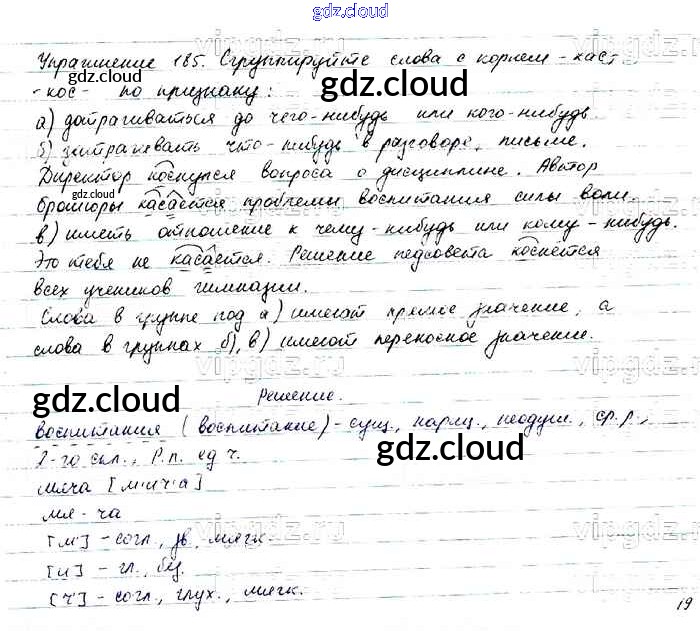 gdz.cloud
Упражнение 185. Сгруппируйте слова с корнем -каст
-кос- по признаку:
а) дотрагиваться до чего-нибудь или кого-нибудь
б) затрагивать что-нибудь в разговоре, письме.
Директор коснулся вопроса о дисциплине. Автор
брошюры касается проблемы воспитания силы воли.
в) иметь отношение к чему-нибудь или кому-нибудь.
Это тебя не касается. Решение педсовета коснётся
всех учеников гимназии.
Слова в группе под а) имеют прямое значение, а
слова в группах б), в) имеют переносное значение.
Решение.
воспитания (воспитание) - сущ., нариц., неодуш., ср.р.,
2-го скл., Р.п. ед ч.
мяча [м'и'ч'а]
мя-ча
[м'] - согл., зв, мягк.
[и] - гл., бу.
[ч'] - согл., глух., мягк.
19
gdz.cloud
gdz.cloud
gdz.cloud
gdz.cloud
gdz.cloud
vipgdz.ru
vipgdz.ru
vipgdz.ru
vipgdz.ru
vipgdz.ru
vipgdz.ru